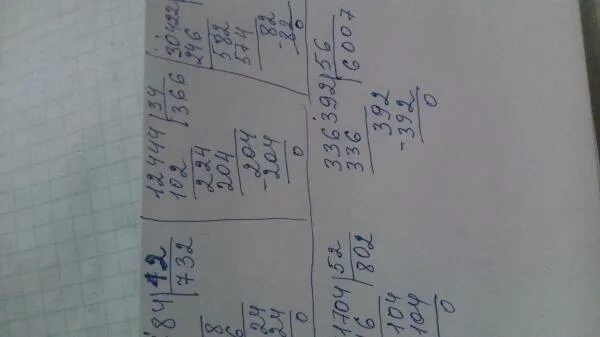 84 42
732
8
6
24
24
0
12444 34
102 366
224
204
204
-204
0
30422
246
582
574
82
-82
1704 52
16 802
104
104
0
336392 56
336 6007
392
-392
0